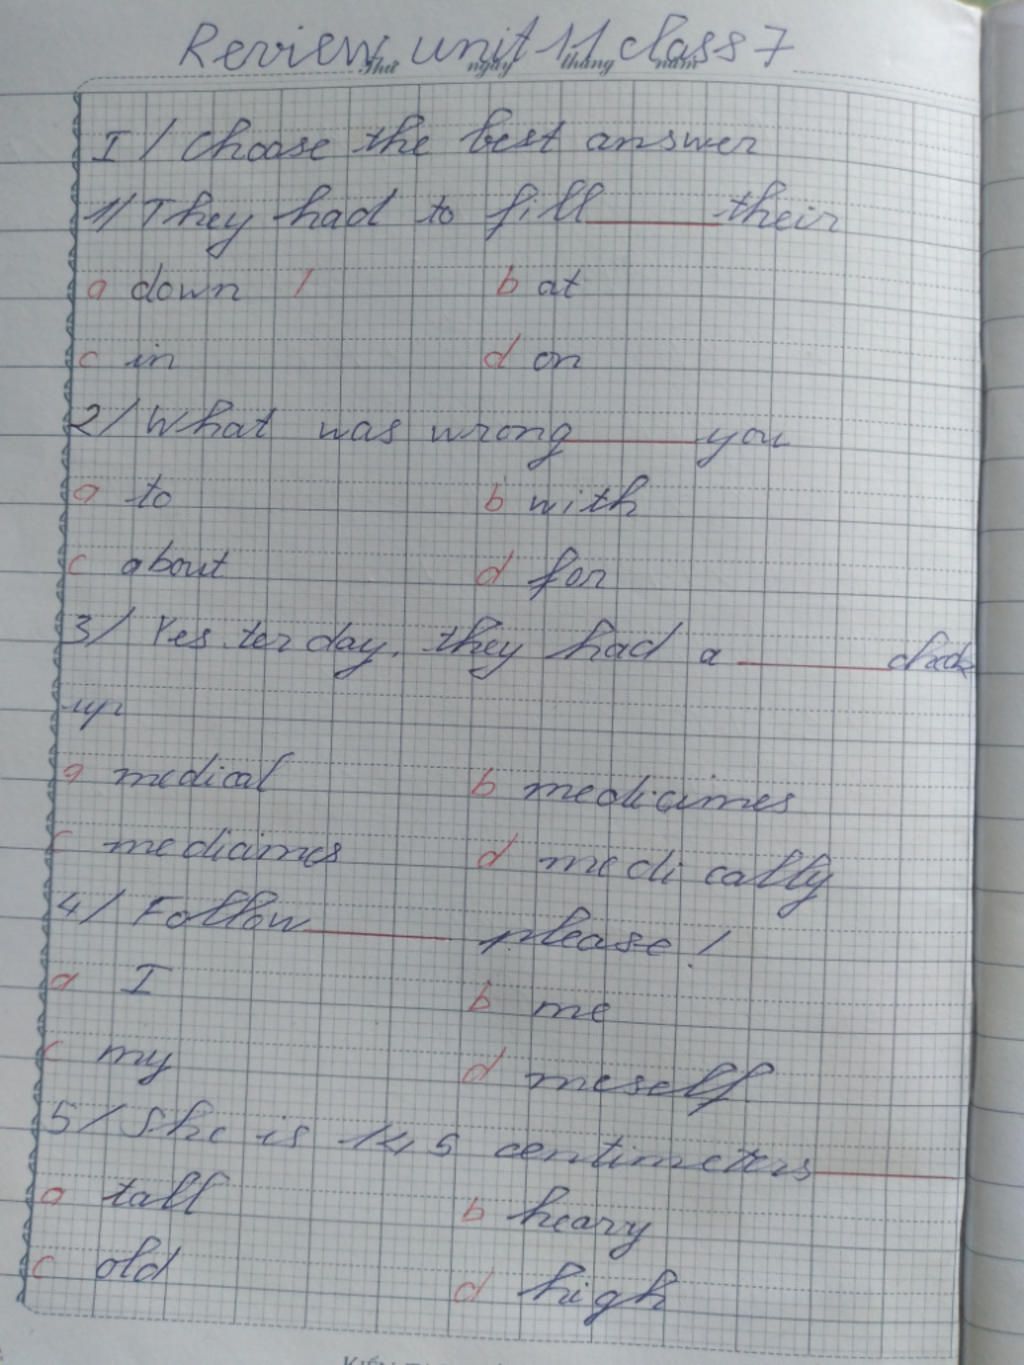 Review unit 11 class 7
Thứ ngày tháng năm
I/ Choose the best answer
1/ They had to fill ____ their
a down / b at
c in d on
2/ What was wrong ____ you
a to b with
c about d for
3/ Yes ter day. they had a ____ check
up
a medical b medicimes
c medicimes d medi cally
4/ Follow ____ please!
a I b me
c my d meself
5/ She is 145 centimeters ____
a tall b heavy
c old d high